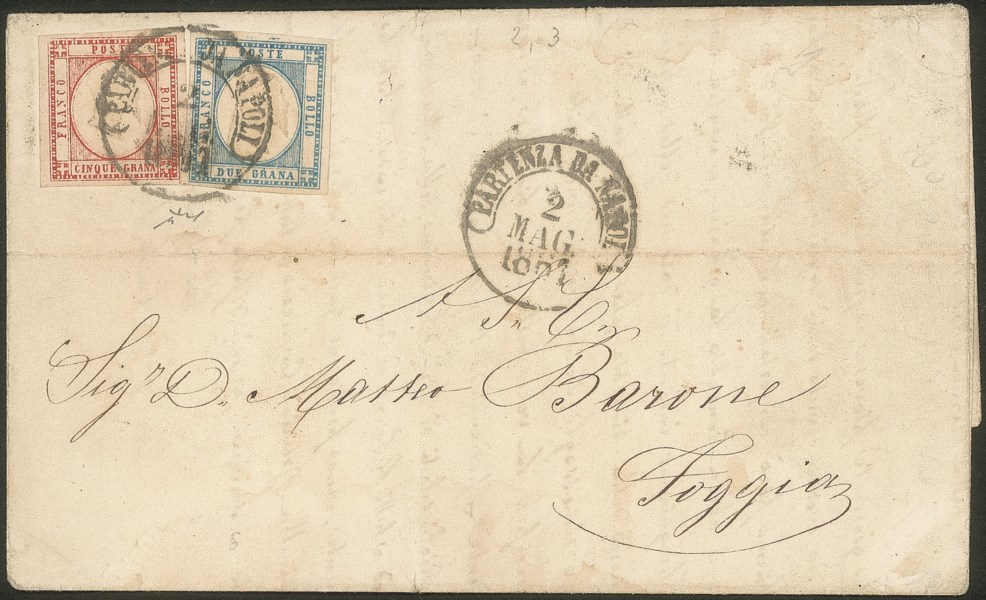 POSTE
FRANCO
BOLLO
CINQUE GRANA
POSTE
FRANCO
BOLLO
DUE GRANA
NAPOLI
1 2,3
PARTENZA DA NAPOLI
2
MAG
A S. E.
Sig.r D. Matteo Barone
Foggia